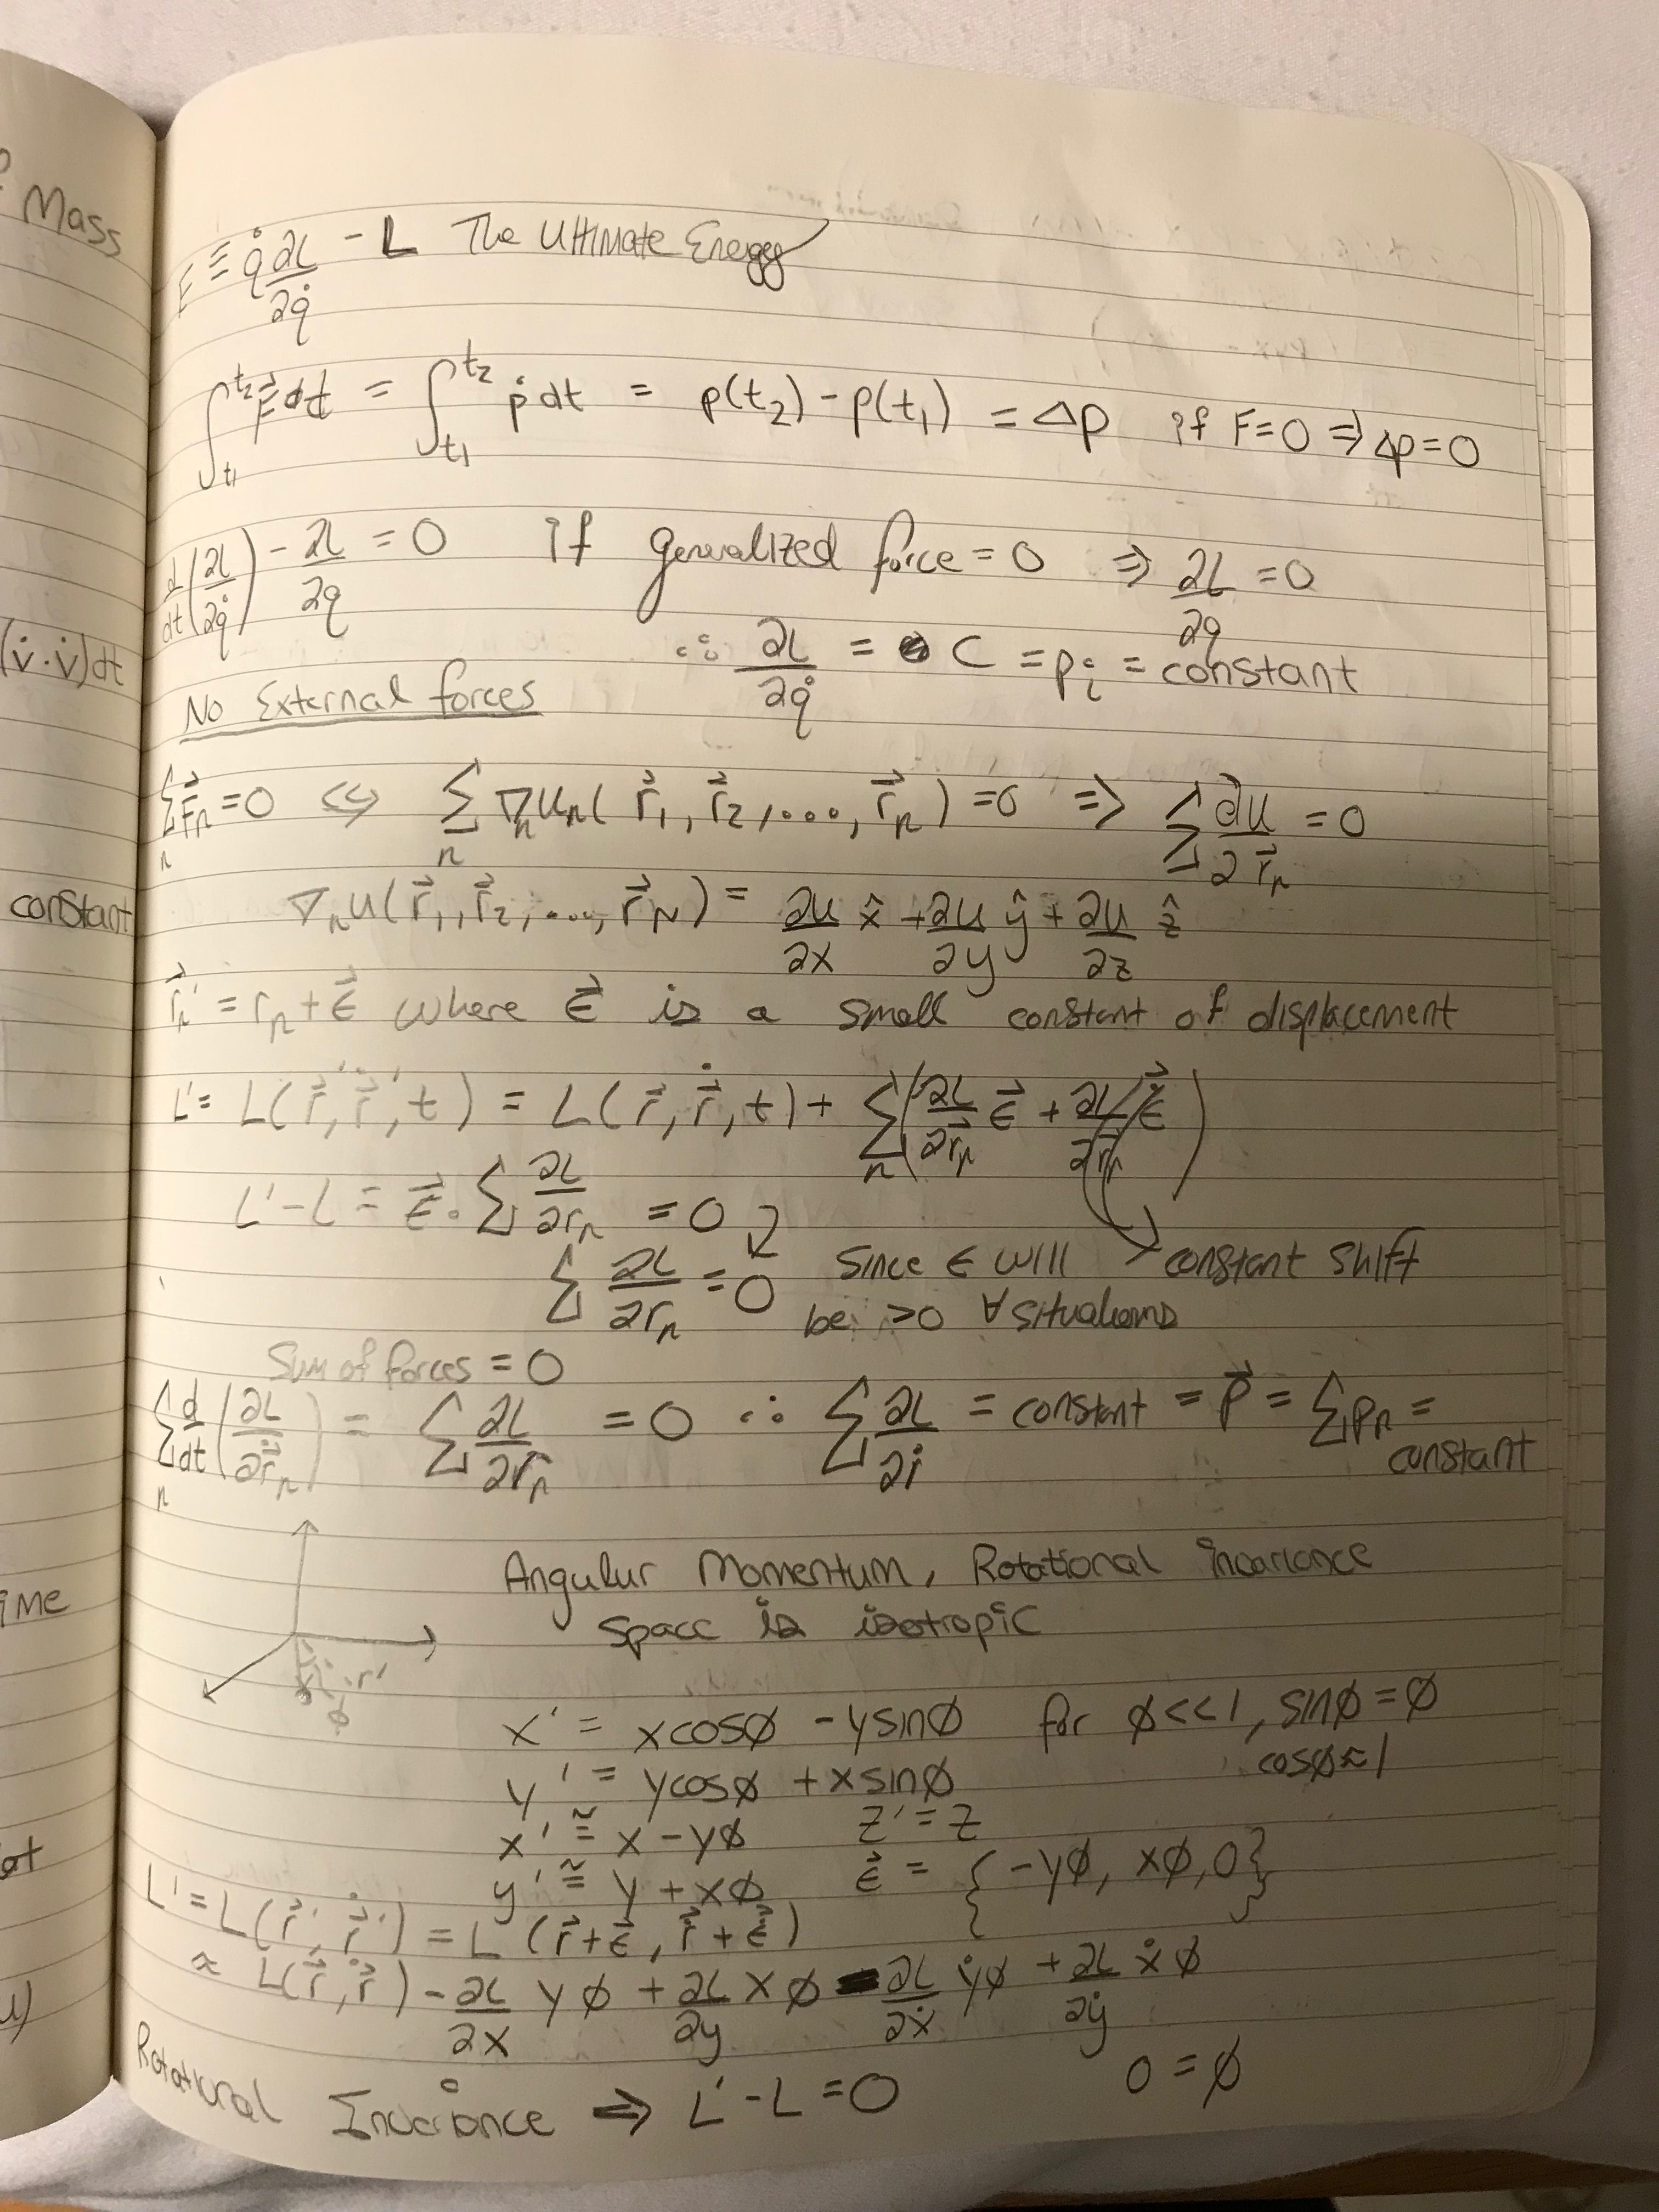 Mass
(v̇·v̇)dt
constant
ime
ot
u)
E ≡ q̇ ∂L/∂q̇ - L The Ultimate Energy
∫_{t1}^{t2} F⃗ dt = ∫_{t1}^{t2} ṗ dt = p(t2) - p(t1) = Δp if F=0 ⇒ Δp=0
d/dt(∂L/∂q̇) - ∂L/∂q = 0 if generalized force = 0 ⇒ ∂L/∂q = 0
∴ ∂L/∂q̇ = C = p_i = constant
No External forces
∑_n F⃗_n = 0 ⇔ ∑_n ∇_n u_n(r⃗_1, r⃗_2, ..., r⃗_n) = 0 ⇒ ∑ ∂u/∂r⃗_n = 0
∇_n u(r⃗_1, r⃗_2, ..., r⃗_N) = ∂u/∂x x̂ + ∂u/∂y ŷ + ∂u/∂z ẑ
r⃗_n' = r_n + ε⃗ where ε⃗ is a small constant of displacement
L' = L(r⃗', ṙ⃗', t) = L(r⃗, ṙ⃗, t) + ∑_n(∂L/∂r⃗_n ε⃗ + ∂L/∂ṙ⃗_n ε̇⃗)
L' - L = ε⃗ · ∑ ∂L/∂r_n = 0
∑ ∂L/∂r_n = 0 Since ε will constant shift
be >0 ∀ situations
Sum of forces = 0
∑_n d/dt(∂L/∂ṙ⃗_n) = ∑ ∂L/∂r⃗_n = 0 ∴ ∑ ∂L/∂ṙ = constant = p⃗ = ∑p_n =
constant
Angular Momentum, Rotational invariance
Space is isotropic
r'
φ
x' = xcosφ - ysinφ for φ<<1, sinφ=φ
cosφ≈1
y' = ycosφ + xsinφ
x' ≅ x - yφ z' = z
y' ≅ y + xφ ε⃗ = {-yφ, xφ, 0}
L' = L(r⃗', ṙ⃗') = L(r⃗+ε⃗, ṙ⃗+ε̇⃗)
≈ L(r⃗, ṙ⃗) - ∂L/∂x yφ + ∂L/∂y xφ - ∂L/∂ẋ ẏφ + ∂L/∂ẏ ẋφ
Rotational Invariance ⇒ L' - L = 0 0 = φ